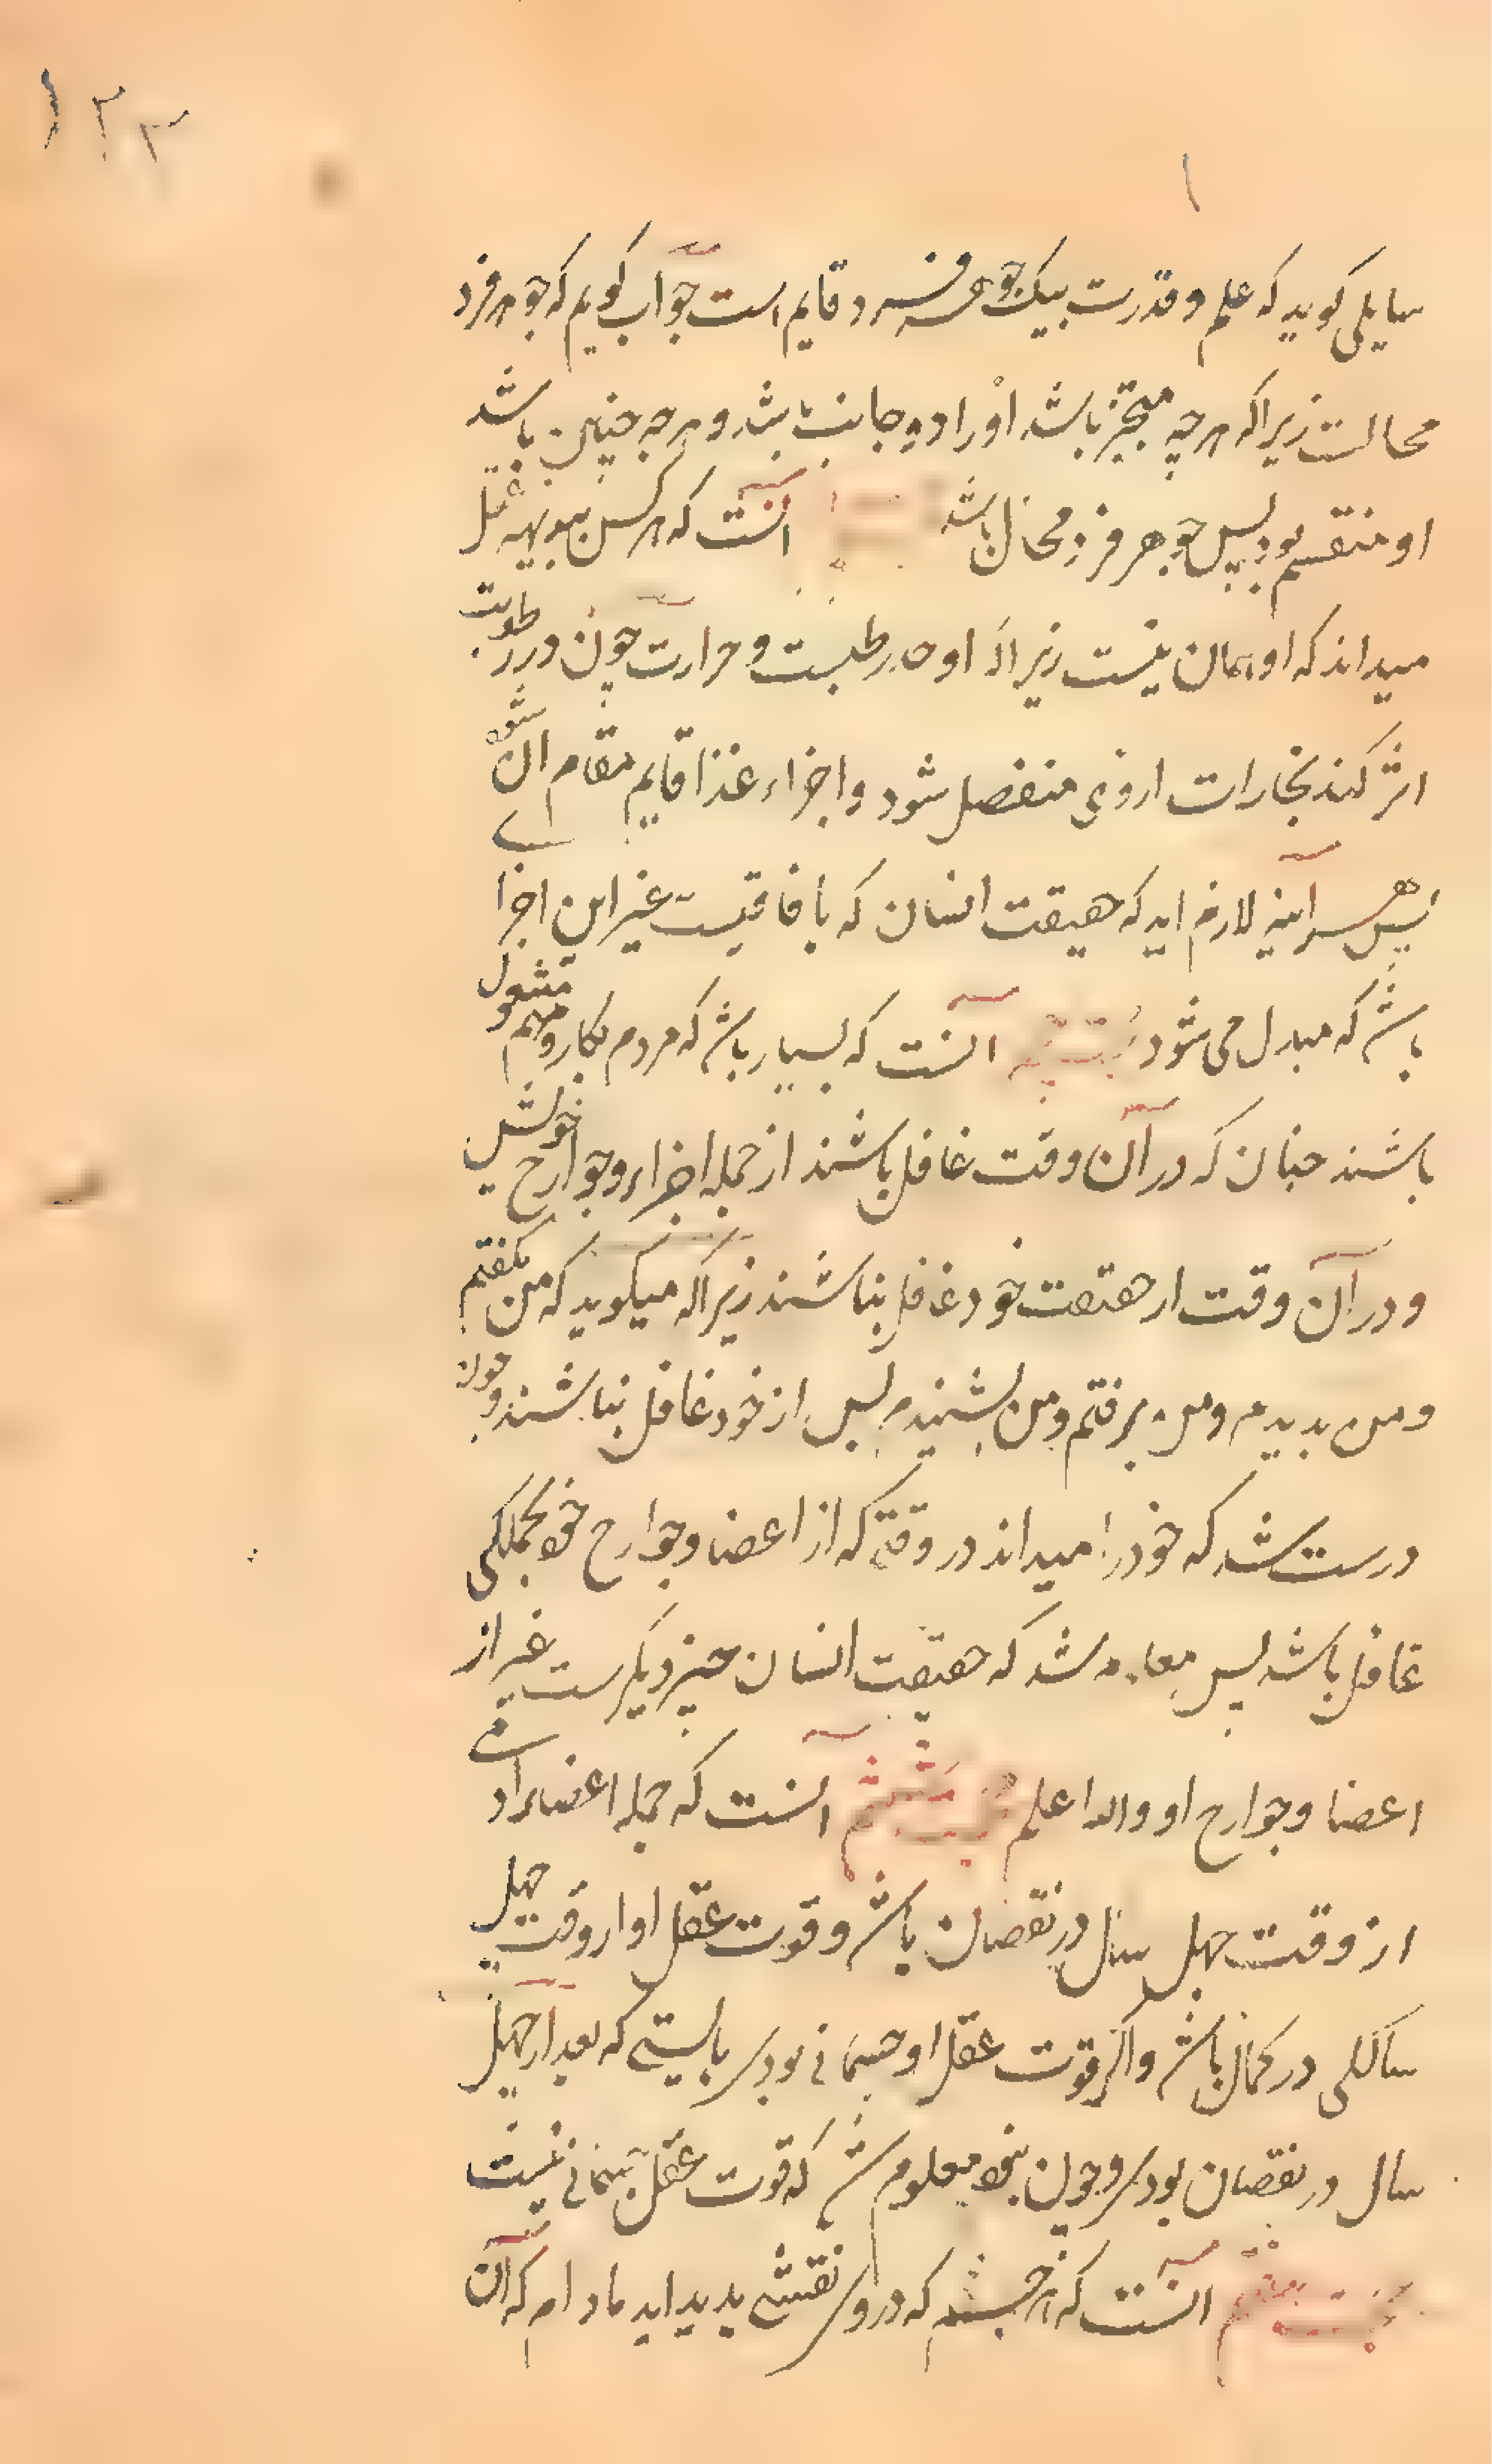 ۱۲۳
۱
سایلی کوید که علم و قدرت بیک جوهر فرد قایم است جواب کویم که جوهر فرد
محالست زیرا که هرچه متحیز باشد او را دو جانب باشد و هرچه چنین باشد
او منقسم بود پس جوهر فرد محال باشد آنست که هرکس ببدیهه عقل
میداند که او همان نیست زیرا که او حار رطبست و حرارت چون در رطوبت
اثر کند بخارات ازوی منفصل شود و اجزاء غذا قایم مقام آن شود
پس هر آینه لازم اید که حقیقت انسان که باقیست غیر این اجزا
باشد که مبدل می شود آنست که بسیار باشد که مردم بکار و مهم مشغول
باشند چنان که در آن وقت غافل باشند از جمله اجزاء و جوارح خویش
و در آن وقت از حقیقت خود غافل نباشند زیرا که میکوید که من بکفتم
و من بدیدم و من برفتم و من بشنیدم پس از خود غافل نباشند و چون
درست شد که خود را میداند در وقتی که از اعضا و جوارح خود بجملکی
غافل باشد پس معلوم شد که حقیقت انسان چیز دیکرست غیر از
اعضا و جوارح او والله اعلم حجت ششم آنست که جمله اعضاء آدمی
از وقت چهل سال در نقصان باشد و قوت عقل او از وقت چهل
سالکی در کمال باشد و اکر قوت عقل او جسمانی بودی بایستی که بعد از چهل
سال در نقصان بودی و چون نبود معلوم شد که قوت عقل جسمانی نیست
حجت هفتم آنست که هر جسم که در وی نقشی پدید اید مادام که آن